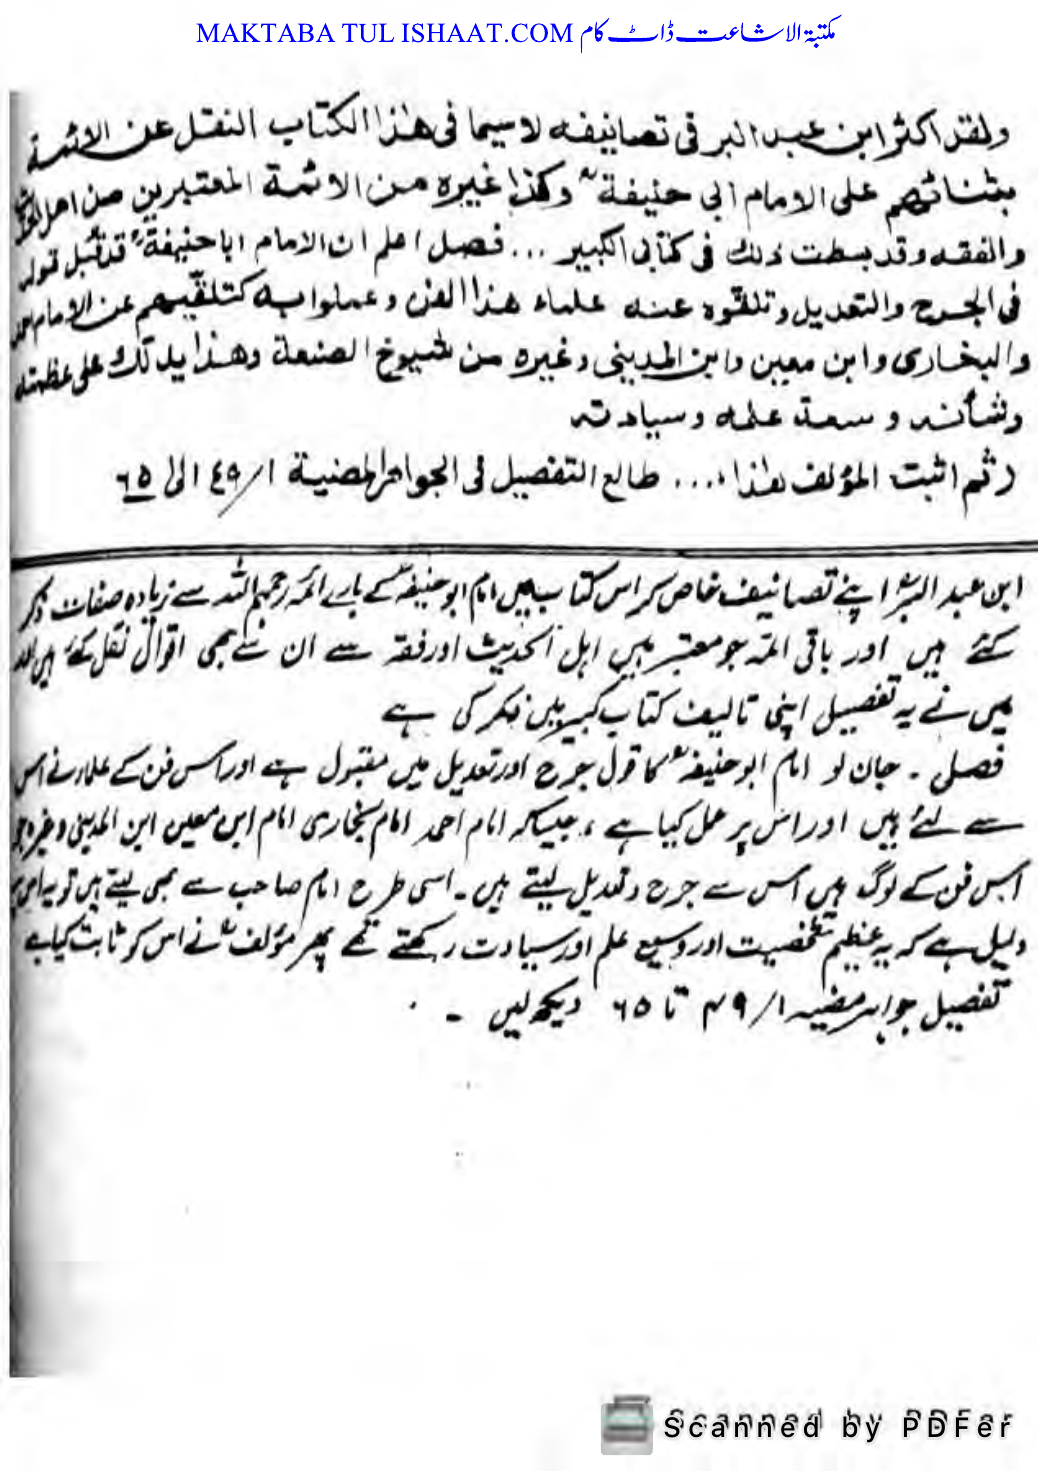 MAKTABA TUL ISHAAT.COM مکتبۃ الاشاعت ڈاٹ کام
ولقد اکثر ابن عبد البر فی تصانیفه لاسیما فی هذا الکتاب النقل عن الائمة
بثنائهم علی الامام ابی حنیفةؒ وکذا غیره من الائمة المعتبرین من اهل
والفقه وقد بسطت ذلك فی کتابی الکبیر ... فصل اعلم ان الامام ابا حنیفةؒ قد قبل قوله
فی الجرح والتعدیل وتلقوه عنه علماء هذا الفن وعملوا به کتلقیهم عن الامام احمد
والبخاری وابن معین وابن المدینی وغیره من شیوخ الصنعة وهذا یدلك علی عظمته
وشأنه وسعة علمه وسیادته
(ثم اثبت المؤلف هذا .... طالع التفصیل فی الجواهر المضیة ٤٩/١ الی ٦٥
ابن عبد البرؒ اپنے تصانیف خاص کر اس کتاب میں امام ابو حنیفہؒ کے بارے ائمہ رحمہم اللہ سے زیادہ صفات ذکر
کئے ہیں اور باقی ائمہ جو معتبر ہیں اہل الحدیث اور فقہ سے ان نے بھی اقوال نقل کئے ہیں
میں نے یہ تفصیل اپنی تالیف کتاب کبیر میں ذکر کی ہے
فصل ۔ جان لو امام ابو حنیفہؒ کا قول جرح اور تعدیل میں مقبول ہے اور اس فن کے علماء نے اس
سے لئے ہیں اور اس پر عمل کیا ہے ، جیسا کہ امام احمد امام بخاری امام ابن معین ابن المدینی وغیرہ جو
اس فن کے لوگ ہیں اس سے جرح و تعدیل لیتے ہیں ۔ اسی طرح امام صاحب سے بھی لیتے ہیں تو یہ اس پر
دلیل ہے کہ یہ عظیم شخصیت اور وسیع علم اور سیادت رکھتے تھے پھر مؤلفؒ نے اس کو ثابت کیا ہے
تفصیل جواہر مضیہ ۴۹/۱ تا ۶۵ دیکھ لیں ۔
Scanned by PDFer